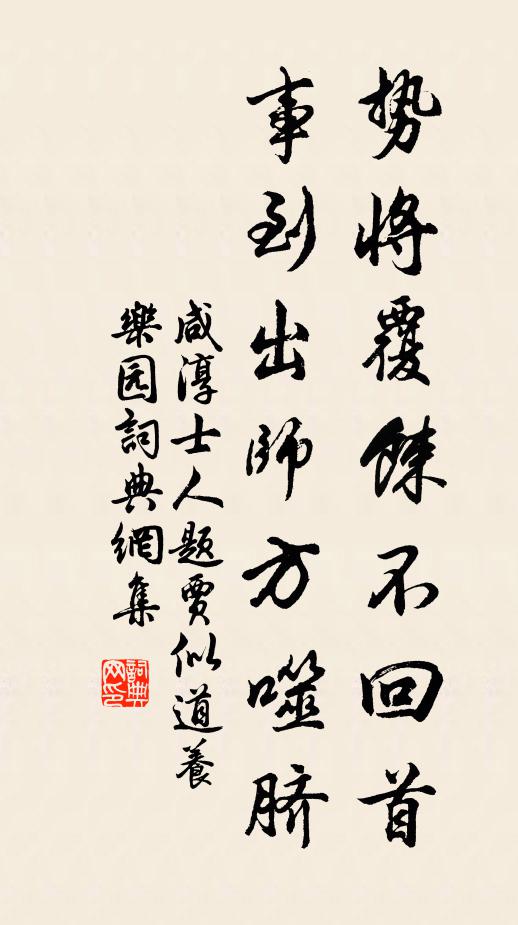 势將覆餗不回首
事到出師方噬脐
咸淳士人题賈似道養
樂园詞典網集
詞典
网印